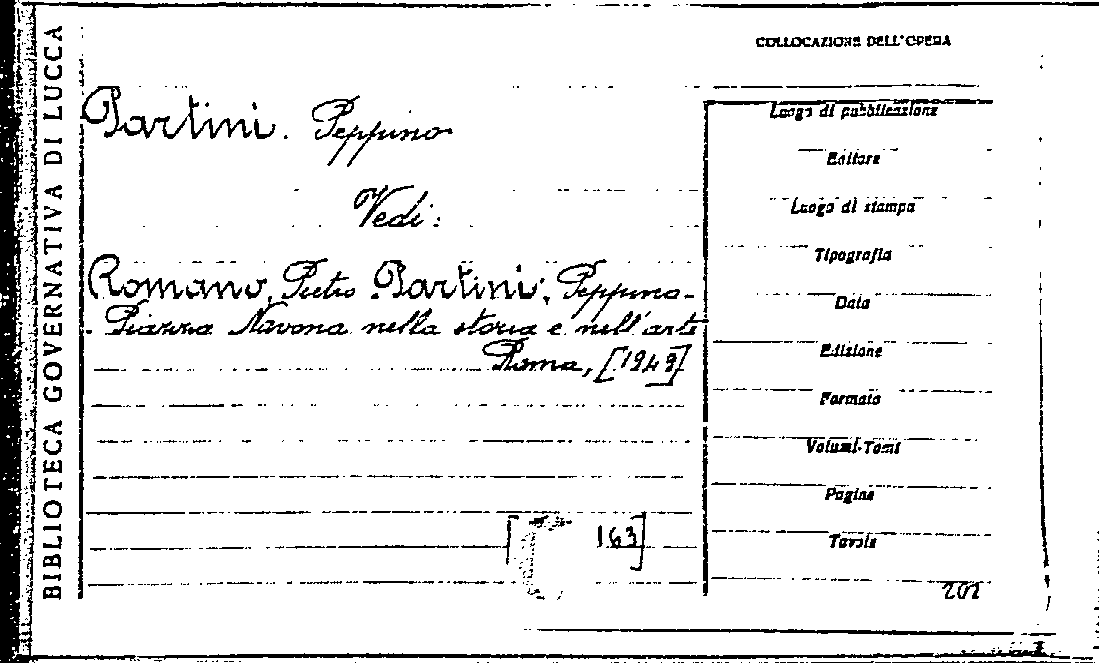 BIBLIOTECA GOVERNATIVA DI LUCCA
COLLOCAZIONE DELL'OPERA
Partini. Peppino
Vedi:
Romano, Pietro. Partini, Peppino-
- Piazza Navona nella storia e nell'arte
Roma, [1949]
[ 163]
Luogo di pubblicazione
Editore
Luogo di stampa
Tipografia
Data
Edizione
Formato
Volumi-Tomi
Pagine
Tavole
202